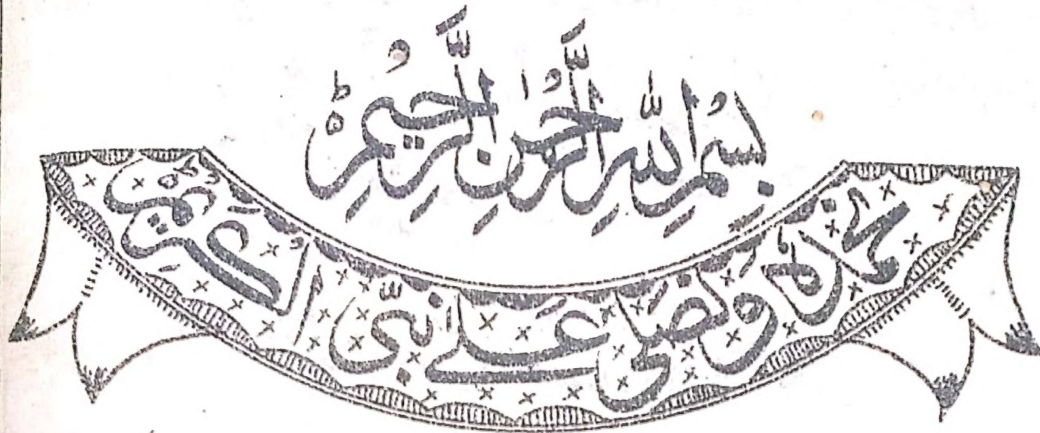 بِسْمِ اللهِ الرَّحْمٰنِ الرَّحِيْمِ ط
نحمدہ و نصلی علے نبیّ الکریم